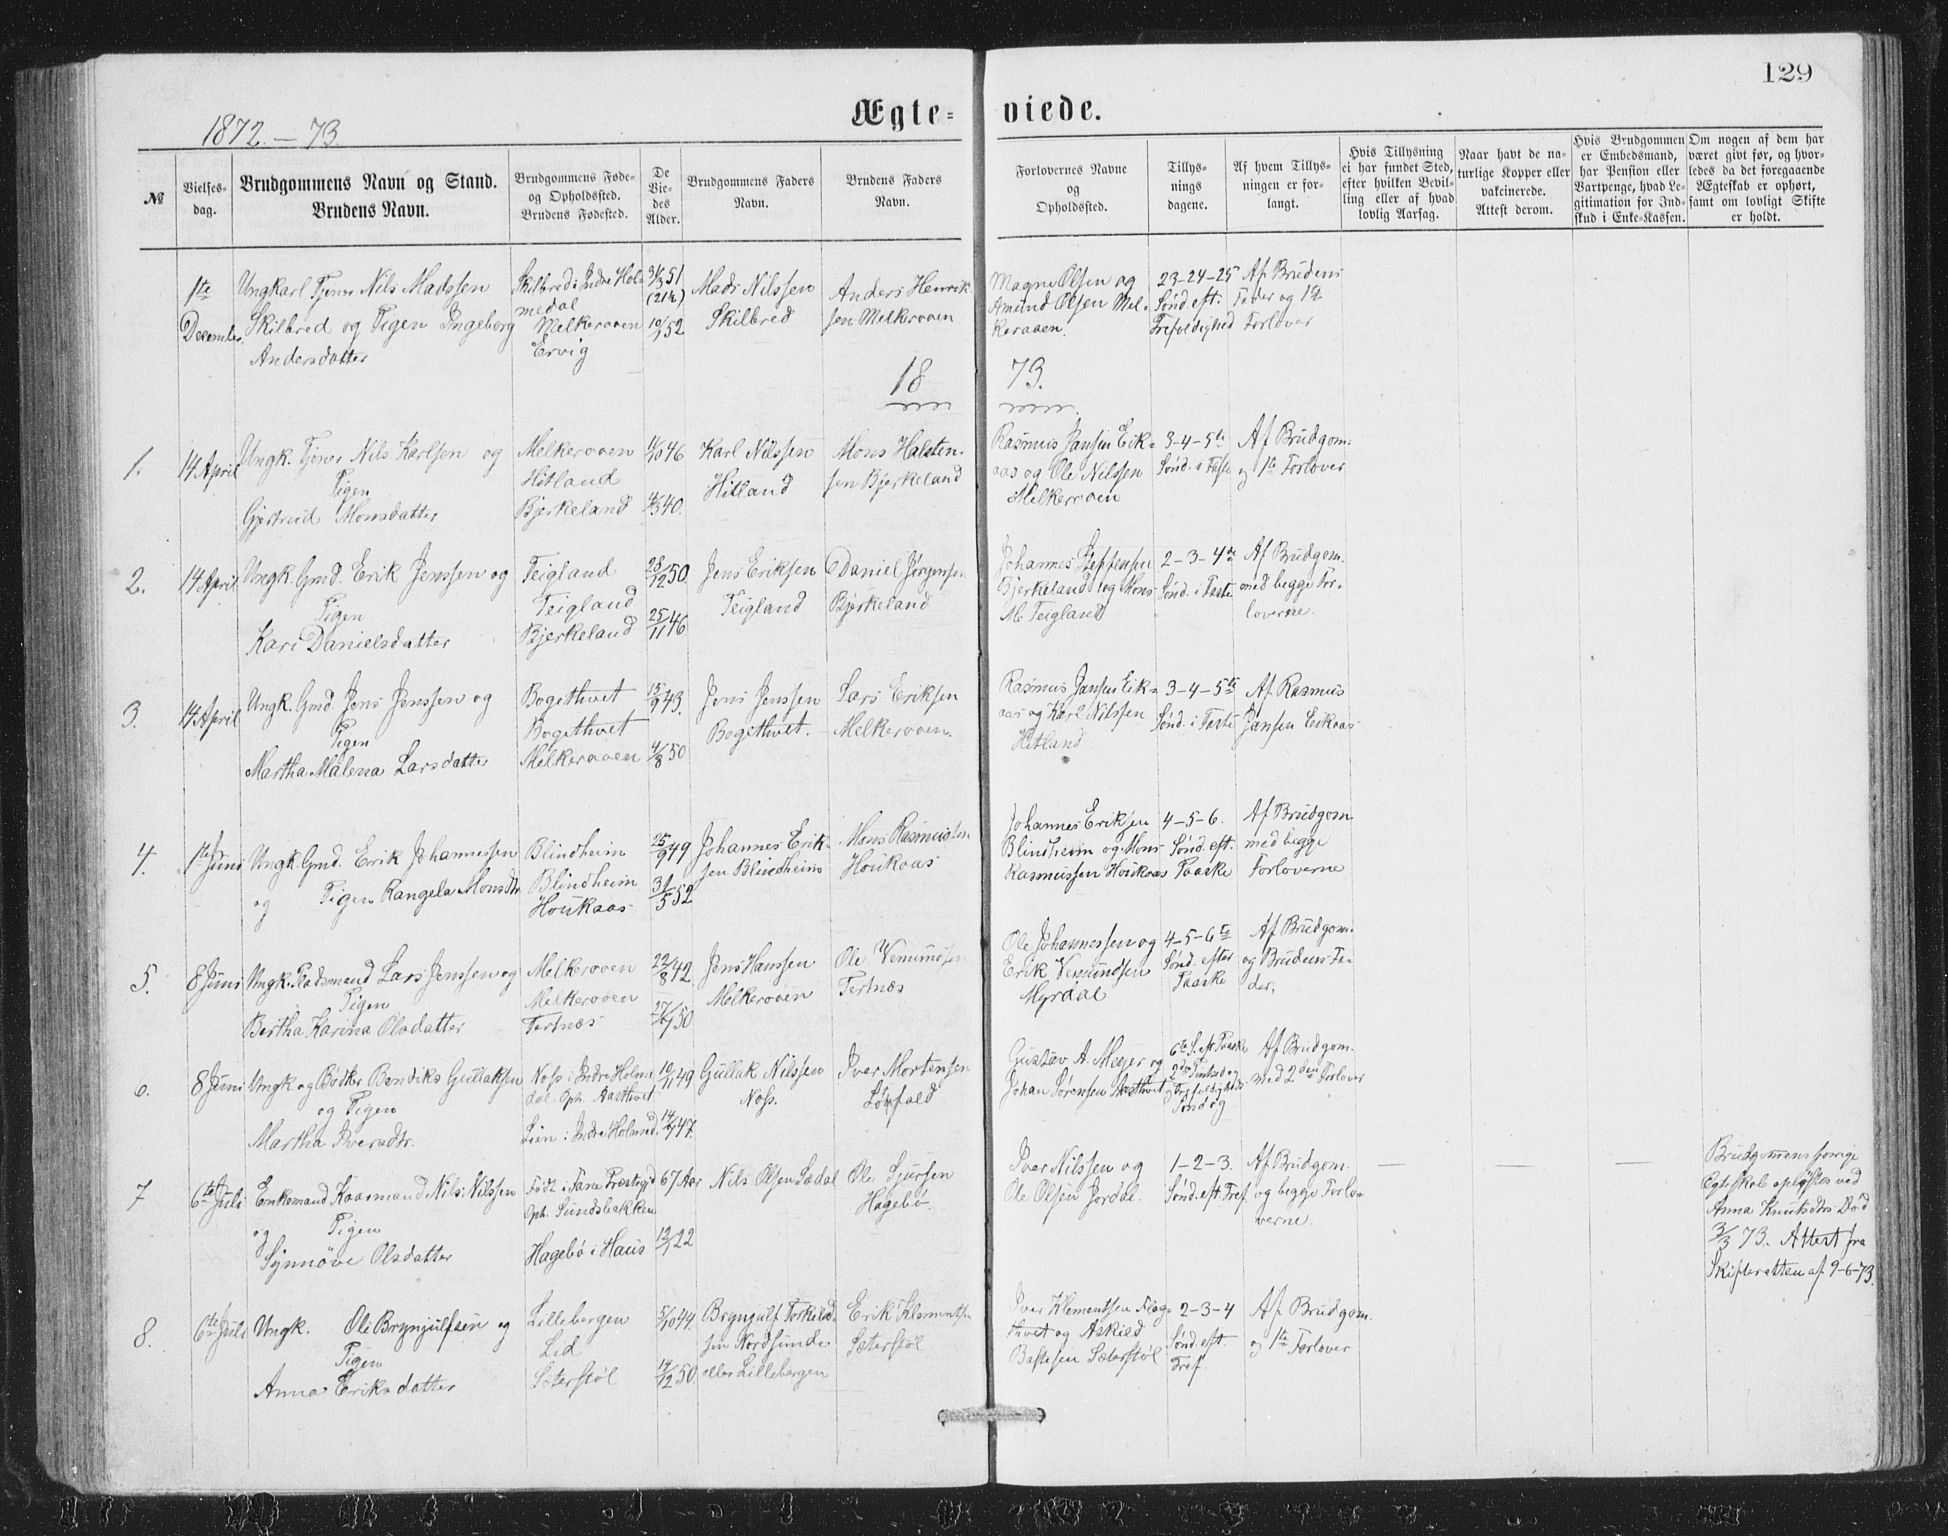 129
1872.-73.
Ægte-
viede.
№
Vielses-
dag.
Brudgommens Navn og Stand.
Brudens Navn.
Brudgommens Føde-
og Opholdssted.
Brudens Fødested.
De
Vie-
des
Alder.
Brudgommens Faders
Navn.
Brudens Faders
Navn.
Forlovernes Navne
og
Opholdssted.
Tillys-
nings
dagene.
Af hvem Tillys-
ningen er for-
langt.
Hvis Tillysning
ei har fundet Sted,
efter hvilken Bevil-
ling eller af hvad
lovlig Aarsag.
Naar havt de na-
turlige Kopper eller
vakcinerede.
Attest derom.
Hvis Brudgommen
er Embedsmand,
har Pension eller
Vartpenge, hvad Le-
gitimation for Ind-
skud i Enke-Kassen.
Om nogen af dem har
været givt før, og hvor-
ledes da det foregaaende
Ægteskab er ophørt,
samt om lovligt Skifte
er holdt.
1te
December
Ungkarl Tjener Nils Madssen
Skilbred og Pigen Ingeborg
Andersdatter
Skilbred i Indre Hol-
medal
Melkeraaen
Ervig
31/3 51
(21½)
10/1 52
Mads Nilssen
Skilbred
Anders Henrik-
sen Melkeraaen
Magne Olsen og
Amund Olsen Mel-
keraaen.
23-24-25
Sönd. eft.
Trefoldighed
Af Brudens
Fader og 1te
Forlover
18
73.
1.
14 April
Ungk. Tjener Nils Karlsen og
Pigen
Gjertrud Monsdatter
Melkeraaen
Hitland
Bjerkeland
11/10 46
4/3 40.
Karl Nilssen
Hitland
Mons Halsten-
sen Bjerkeland
Rasmus Jansen Eik-
aas og Ole Nilssen
Melkeraaen
3-4-5te
Sönd. i Faste
Af Brudgom.
og 1te Forlover
2.
14 April
Ungk. Gmd. Erik Jenssen og
Pigen
Kari Danielsdatter
Teigland
Teigland
Bjerkeland
28/12 50
25/11 46
Jens Eriksen
Teigland
Daniel Jörgensen
Bjerkeland
Johannes Steffensen
Bjerkeland og Mons
M. Teigland
2-3-4de
Sönd. i Faste
Af Brudgom.
med begge For-
loverne.
3.
14 April
Ungk. Gmd. Jens Jenssen og
Pigen
Martha Malena Larsdatter
Bogethvet
Bogethvet
Melkeraaen
15/9 43.
4/8 50
Jens Jenssen
Bogethvet.
Lars Eriksen
Melkeraaen.
Rasmus Jansen Eik-
aas og Karl Nilssen
Hitland
3-4-5te
Sönd. i Faste
Af Rasmus
Jansen Eikaas
4.
1te Juni
Ungk. Gmd. Erik Johannessen
og Pigen Rangela Monsdtr.
Blindheim
Blindheim
Houkaas
25/9 49
31/5 52
Johannes Erik-
sen Blindheim
Mons Rasmussen
Houkaas
Johannes Eriksen
Blindheim og Mons
Rasmussen Houkaas
4-5-6.
Sönd. eft.
Paaske
Af Brudgom
med begge
Forloverne
5.
8 Juni
Ungk. Pladsmand Lars Jenssen og
Pigen
Bertha Karina Olsdatter
Melkeraaen
Melkeraaen
Tertnæs
22/8 42.
50
Jens Hanssen
Melkeraaen
Ole Vemundsen
Tertnæs
Ole Johannessen og
Erik Vemundsen
Myrdal
4-5-6te
Sönd. efter
Paaske
Af Brudgom.
og Brudens Fa-
der,
6.
8 Juni
Ungk. og Bödker Bendiks Gullaksen
og Pigen
Martha Iversdtr.
Noss i Indre Holme
dal. Oph. Aasthvet
Lien i Indre Holmed.
10/11 49
47.
Gullak Nilssen
Noss.
Iver Mortensen
Gustav A. Meyer og
Johan Sörensen Aasthvet
6te S. eft. Paaske
2den Pintsedag
og Trefoldigheds
Söndag
Af Brudgom.
med 2den Forlover
7
6te Juli
Enkemand Kaarmand Nils Nilssen
og Pigen
Synnöve Olsdatter
Födt i Fane Prestegd
Oph. Sundsbakken
Hagebö i Haus
67 Aar
12/1 22
Nils Olsen Sædal
Ole Sjursen
Hagebö.
Iver Nilssen og
Ole Olsen Jordal.
1-2-3.
Sönd. eft. Tref
Af Brudgom.
og begge Forlo-
verne.
—
—
—
Brudgomens forrige
Egteskab oplöstes ved
Anna Knutsdtrs Död
3/3 73. Attest fra
Skifteretten af 9-6-73.
8.
6te Juli
Ungk. Ole Brynjulfsen og
Pigen
Anna Eriksdatter
Lillebergen
Lid
Sæterstöl
5/10 44.
14/12 50
Brynjulf Torkild-
sen Nordsundet
eller Lillebergen
Erik Klementsen
Sæterstöl
Iver Klementsen Flag-
thvet og Askild
Bastesen Sæterstöl
2-3-4
Sönd. eft.
Tref.
Af Brudgom.
og 1te Forlover